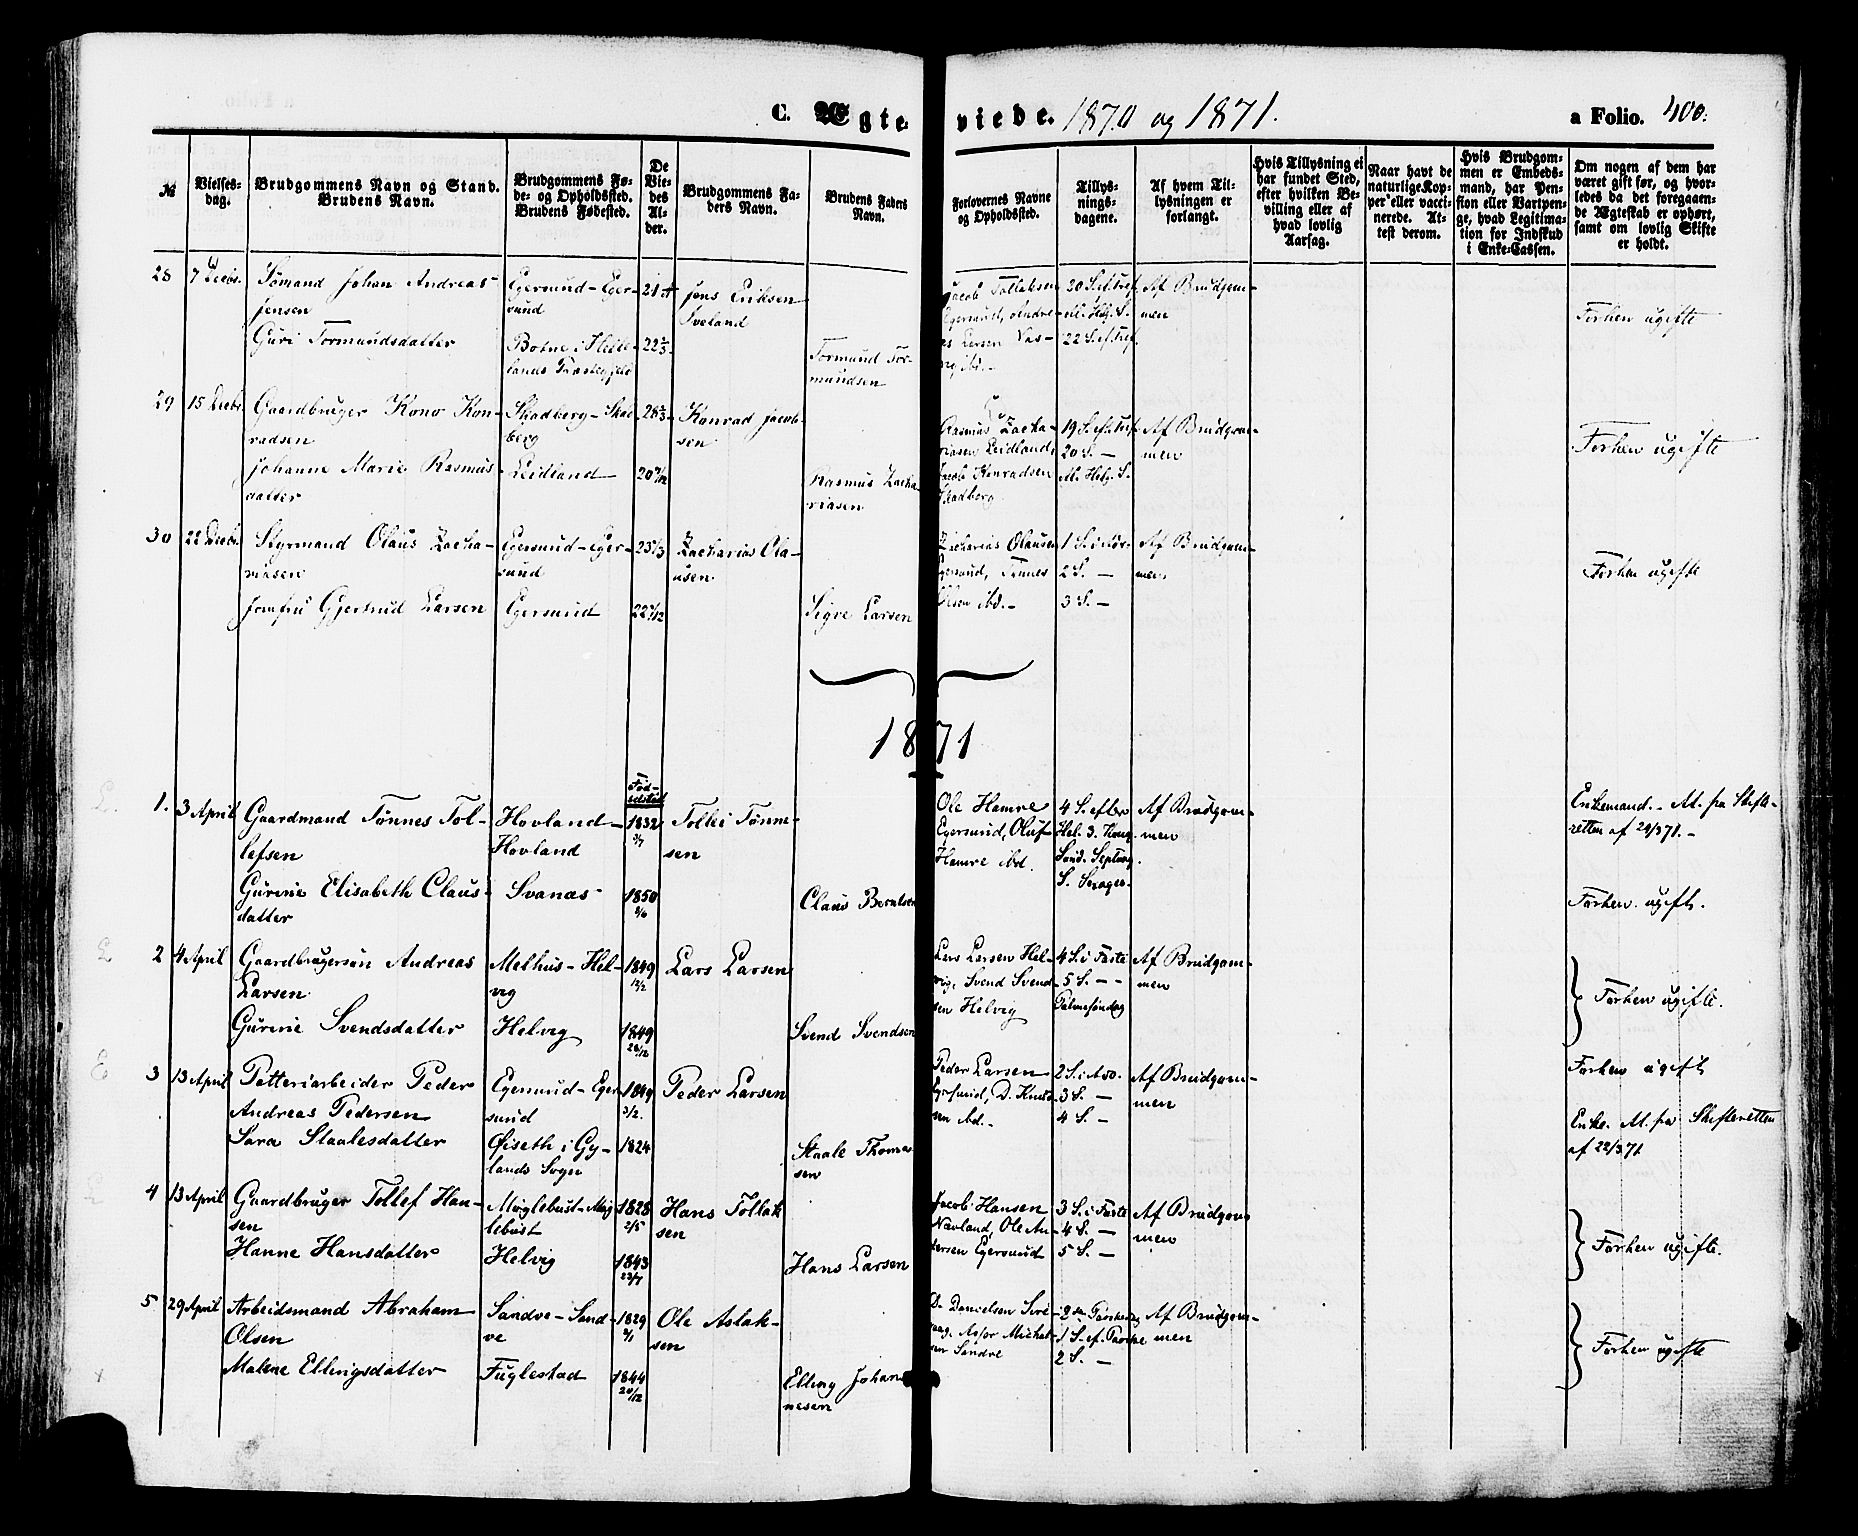 C. Ægteviede. 1870 og 1871. a Folio. 400.
№
Vielsesdag.
Brudgommens Navn og Stand. Brudens Navn.
Brudgommens Føde- og Opholdssted. Brudens Fødested.
De Viedes Alder.
Brudgommens Faders Navn.
Brudens Faders Navn.
Forlovernes Navne og Opholdssted.
Tillysningsdagene.
Af hvem Tillysningen er forlangt.
Hvis Tillysning ei har fundet Sted, efter hvilken Bevilling eller af hvad lovlig Aarsag.
Naar havt de naturlige Kopper eller vaccinerede. Attest derom.
Hvis Brudgommen er Embedsmand, har Pension eller Vartpenge, hvad Legitimation for Indskud i Enke-Cassen.
Om nogen af dem har været gift før, og hvorledes da det foregaaende Ægteskab er ophørt, samt om lovlig Skifte er holdt.
28 7 Decbr. Sømand Johan Andreas Jensen Egersund-Egersund Jens Eriksen Sveland
Jacob Tollaksen Egersund, Andreas Larsen ibd.
20 S. ef. Tref. All. Helg. S. 22 S. ef. Tref. Af Brudgommen
Guri Tormundsdatter Botne i Hellelands Præstegjeld 22 Tormund Tormundsen
Forhen ugifte
29 15 Decbr. Gaardbruger Kono Konradsen Skadberg-Skadberg 28 Konrad Jacobsen
Johanne Marie Rasmusdatter Leidland 20 Rasmus Zachariasen
Rasmus Zachariasen Leidland, Jacob Konradsen Skadberg
19 S. ef. Tref. 20 S. — Al. Helg. S. Af Brudgommen
Forhen ugifte
30 22 Decbr. Styrmand Olaus Zachariasen Egersund-Egersund 25 Zacharias Olausen
Jomfru Gjertrud Larsen Egersund 22 Sigve Larsen
Zacharias Olausen Egersund, Tønnes Olsen ibd.-
1 S. i Adv. 2 S. — 3 S. — Af Brudgommen
Forhen ugifte
1871
Fødselstid
1. 3 April Gaardmand Tønnes Tollefsen Hovland-Hovland 1832 3/7 Tollei Tønnesen
Gurine Elisabeth Clausdatter Svanæs 1850 Claus Berntsen
Ole Hamre Egersund, Oluf Hamre ibd.
4 S. efter Hel. 3. Kong. Sønd. Septuag. S. Sexages. Af Brudgommen
Enkemand.- At. fra Skifteretten af 29/3 71.-
Forhen ugift.
2 4 April Gaardbrugersøn Andreas Larsen Melhus-Helvig 1849 12/2 Lars Larsen
Gurine Svendsdatter Helvig 1849 Svend Svendsen
Lars Larsen Helvig, Svend Svendsen Helvig
4 S. i Faste 5 S. - - Palmesøndag Af Brudgommen
Forhen ugifte.
3 13 April Potteriarbeider Peder Andreas Pedersen Egersund-Egersund 1849 3/2. Peder Larsen
Sara Staalesdatter Øiseth i Gylands Sogn 1824 Staale Thomassen
Peder Larsen Egersund, D. Knudsen ibd.-
3 S. — 4 S. — Af Brudgommen
Forhen ugift
Enke. At. fra Skifteretten af 22/3 71
4 13 April Gaardbruger Tollef Hansen Møglebust-Møglebust 1828 2/5 Hans Tollaksen
Hanne Hansdatter Helvig 1843 23/7 Hans Larsen
Jacob Hansen Navland, Ole Andersen Egersund
3 S. i Faste 4 S. — 5 S. — Af Brudgommen
Forhen ugifte.
5 29 April Arbeidsmand Abraham Olsen Sandve-Sandve 1829 Ole Aslaksen
Malene Ellingsdatter Fuglestad 1844 20/12 Elling Johannesen
D. Danielsen Sirevaag, Michalsen Sandve
2den Paaskedag 1 S. ef. Paaske 2 S. — Af Brudgommen
Forhen ugifte